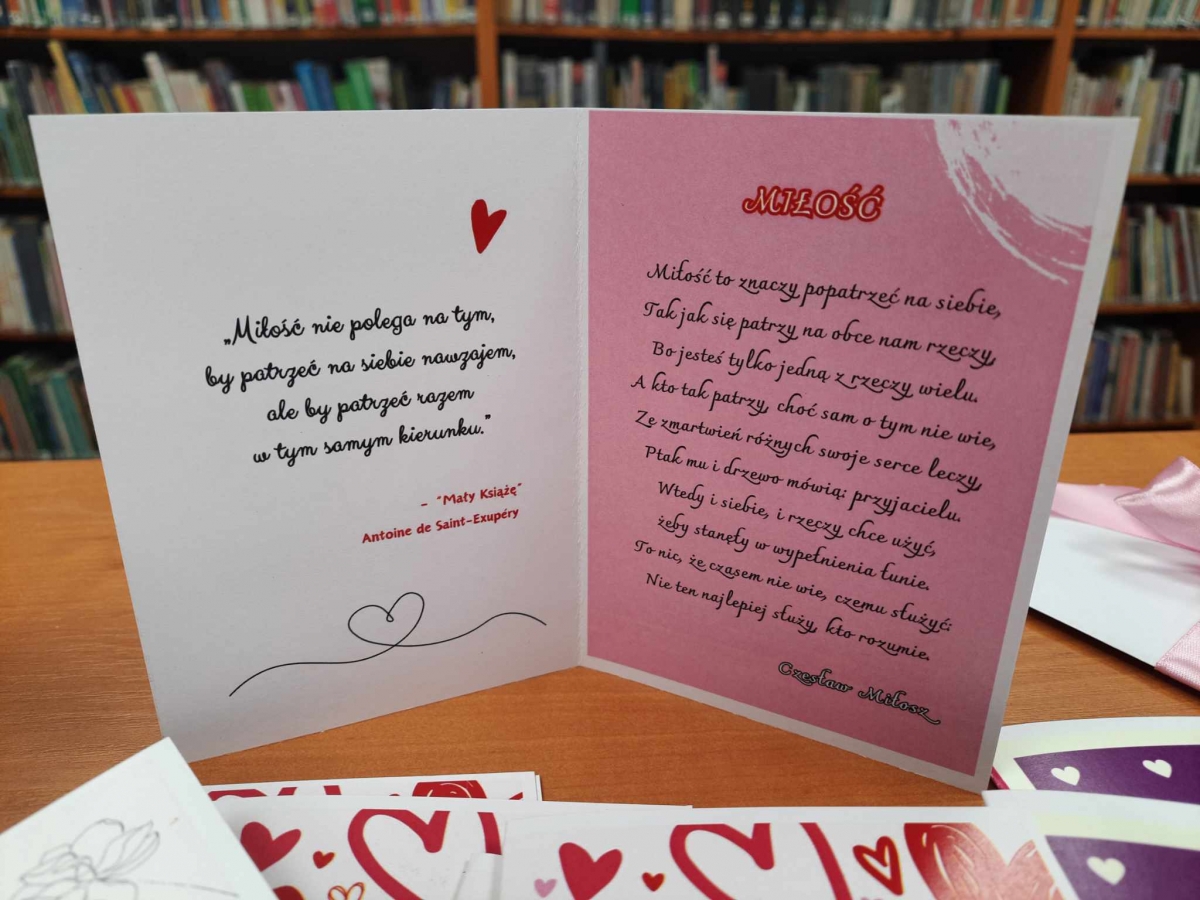 „Miłość nie polega na tym,
by patrzeć na siebie nawzajem,
ale by patrzeć razem
w tym samym kierunku.”
– "Mały Książę"
Antoine de Saint-Exupéry
MIŁOŚĆ
Miłość to znaczy popatrzeć na siebie,
Tak jak się patrzy na obce nam rzeczy,
Bo jesteś tylko jedną z rzeczy wielu.
A kto tak patrzy, choć sam o tym nie wie,
Ze zmartwień różnych swoje serce leczy,
Ptak mu i drzewo mówią: przyjacielu.
Wtedy i siebie, i rzeczy chce użyć,
żeby stanęły w wypełnienia łunie.
To nic, że czasem nie wie, czemu służyć:
Nie ten najlepiej służy, kto rozumie.
Czesław Miłosz